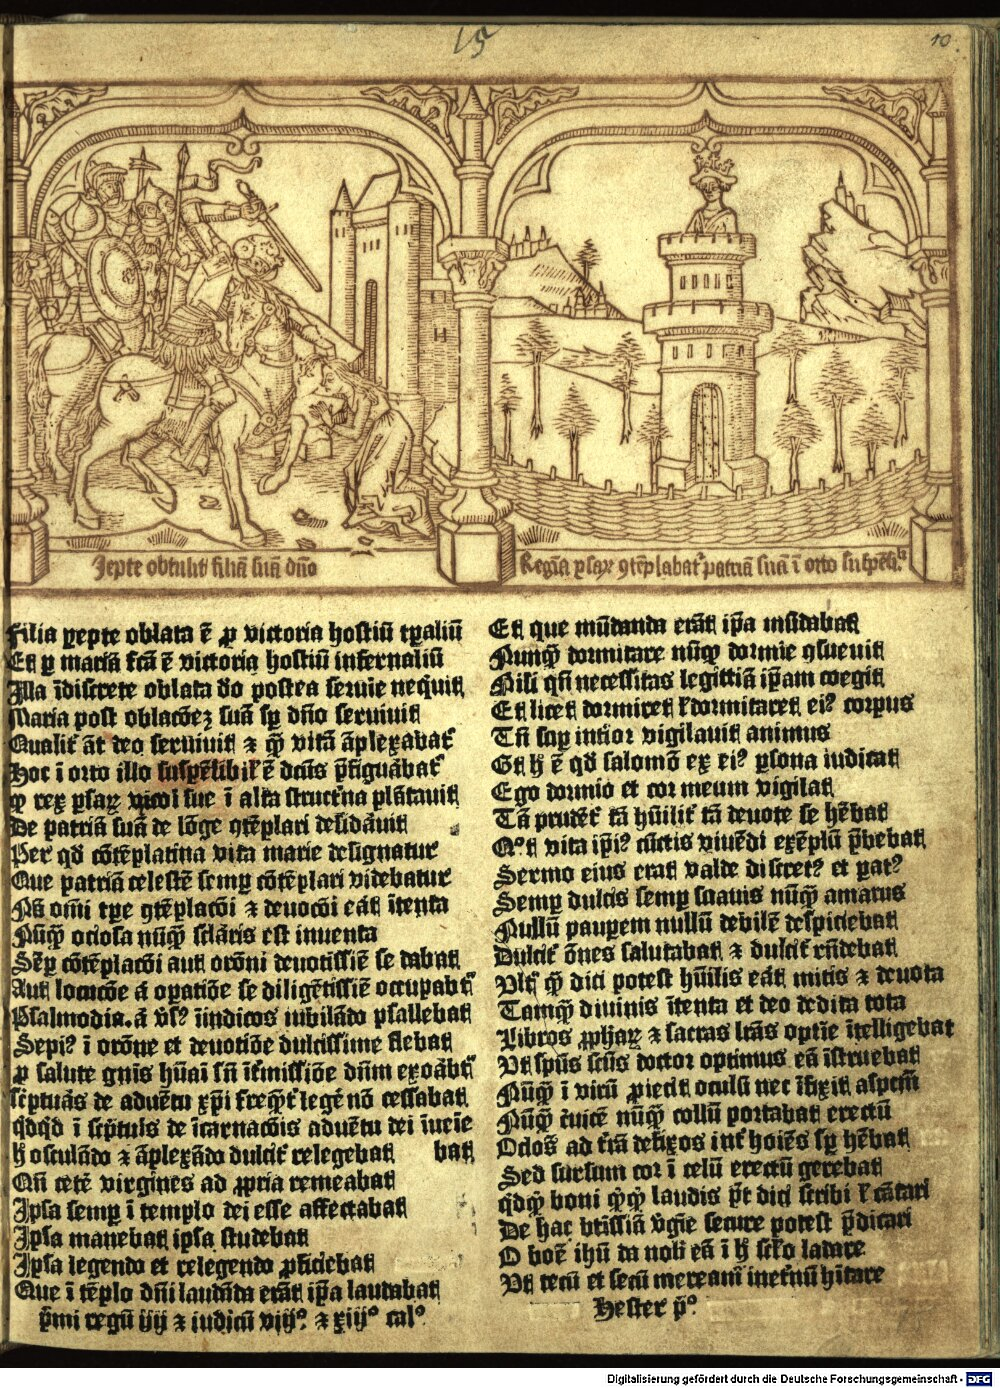 15
10.
Jepte obtulit filiā suā dño
Regīa psaꝝ ꝯtēplabat᷑ patriā suā ī orto suspēsibˡⁱ
Filia yepte oblata ē ꝓ victoria hostiū tp̄aliū
Et ꝑ mariā fcā ē victoria hostiū infernaliū
Illa īdiscrete oblata dño postea seruire nequit
Maria post oblacōeꝫ suā sꝑ dño seruiuit
Qualit᷑ āt deo seruiuit ⁊ qͣꝫ vitā āplexabat᷑
Hoc ī orto illo suspēsibili ē dcūs p̄figuābat᷑
qͥ rex psaꝝ vxori sue ī alta structūa plātauit
De patriā suā de lōge ꝯtēplari desidāuit
Per qd cōtēplatiua vita marie designatur
Que patriā celestē semꝑ cōtēplari videbatur
Nā om̄i tꝑe ꝯtēplacōi ⁊ deuocōi eāt ītenta
Nūqͣꝫ ociosa nūqͣꝫ sclāris est inuenta
Sēꝑ cōtēplacōi aut orōni deuotissīe se dabat
Aut locucōe ā oꝑatiōe se diligētissīe occupabat᷑
Psalmodia. ā vs̄ꝰ īindicos iubilādo psallebat
Sepiꝰ ī orōne et deuotiōe dulcissime flebat
ꝓ salute gn̄is hūāi sn̄ īt᷑missiōe dn̄m exoābat᷑
sc̄ptuās de aduētu xp̄i freq̄nt᷑ legēe nō cessabat
qͥdqͥd ī scͥptuīs de īcarnacōis aduētu dei īueīe
bat
h̄ osculādo ⁊ āplexādo dulcit᷑ relegebat
Qn̄ cetē virgines ad ꝓpria remeabat
Ipsa semꝑ ī templo dei esse affectabat
Ipsa manebat ipsa studebat
Ipsa legendo et relegendo ꝓficiebat
Que ī tēplo dn̄i laudāda erāt ip̄a laudabat
p̄mi regū iiij ⁊ iudicū viijꝰ. ⁊ xiijº calº
Et que mūdanda erāt ip̄a mūdabat
Nunqͣꝫ dormitare nūqͣꝫ dormīe ꝯsueuit
Nili qn̄ necessitas legittīa ip̄am coegit
Et licet dormiret ł dormitaret eiꝰ corpus
Tn̄ sꝑ intior vigilauit animus
Et h̄ ē qd salomō ex eiꝰ ꝑsona iudicat
Ego dormio et cor meum vigilat
Tā prudēt᷑ tā hūilit᷑ tā deuote se hēbat
Qºt vita ip̄iꝰ cūctis viuēdi exēplū p̄hebat
Sermo eius erat valde discretꝰ et ꝑatꝰ
Semꝑ dulcis semꝑ suauis nūqͣꝫ amarus
Nullū pauꝑem nullū debilē despiciebat
Dulcit᷑ ōnes salutabat ⁊ dulcit᷑ rn̄debat
Vlt᷑ qͣꝫ dici potest hūilis eāt mitis ⁊ deuota
Tamqͣꝫ diuinis ītenta et deo dedita tota
Libros ꝓphaꝝ ⁊ sacras lrās optīe ītelligebat
Vt sp̄us scūs doctor optimus eā īstruebat
Nūqͣꝫ ī virū ꝓiecit oculū nec īfixit aspcm̄
Nūqͣꝫ c̄uicē nūqͣꝫ collū portabat erectū
Oclos̄ ad t᷑rā defixos int᷑ hoīes sꝑ hēbat
Sed sursum cor ī celū erectū gerebat
qͥdqͥd boni qͥqͣꝫ laudis p̄t dici scribi ł cātari
De hac btissīa v̄gīe secure potest p̄dicari
O boē ihū da nob̄ eā ī h̄ sc̄lo ladare
Vt tecū et secū meream᷑ inet᷑nū hītare
Hester pº
Digitalisierung gefördert durch die Deutsche Forschungsgemeinschaft - DFG